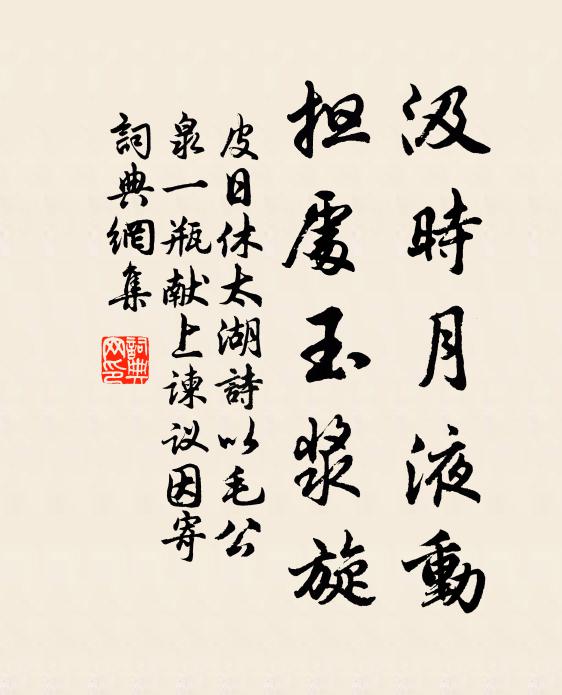 汲時月液動
担處玉漿旋
皮日休太湖詩以毛公
泉一瓶献上諫议因寄
詞典網集
詞典网印